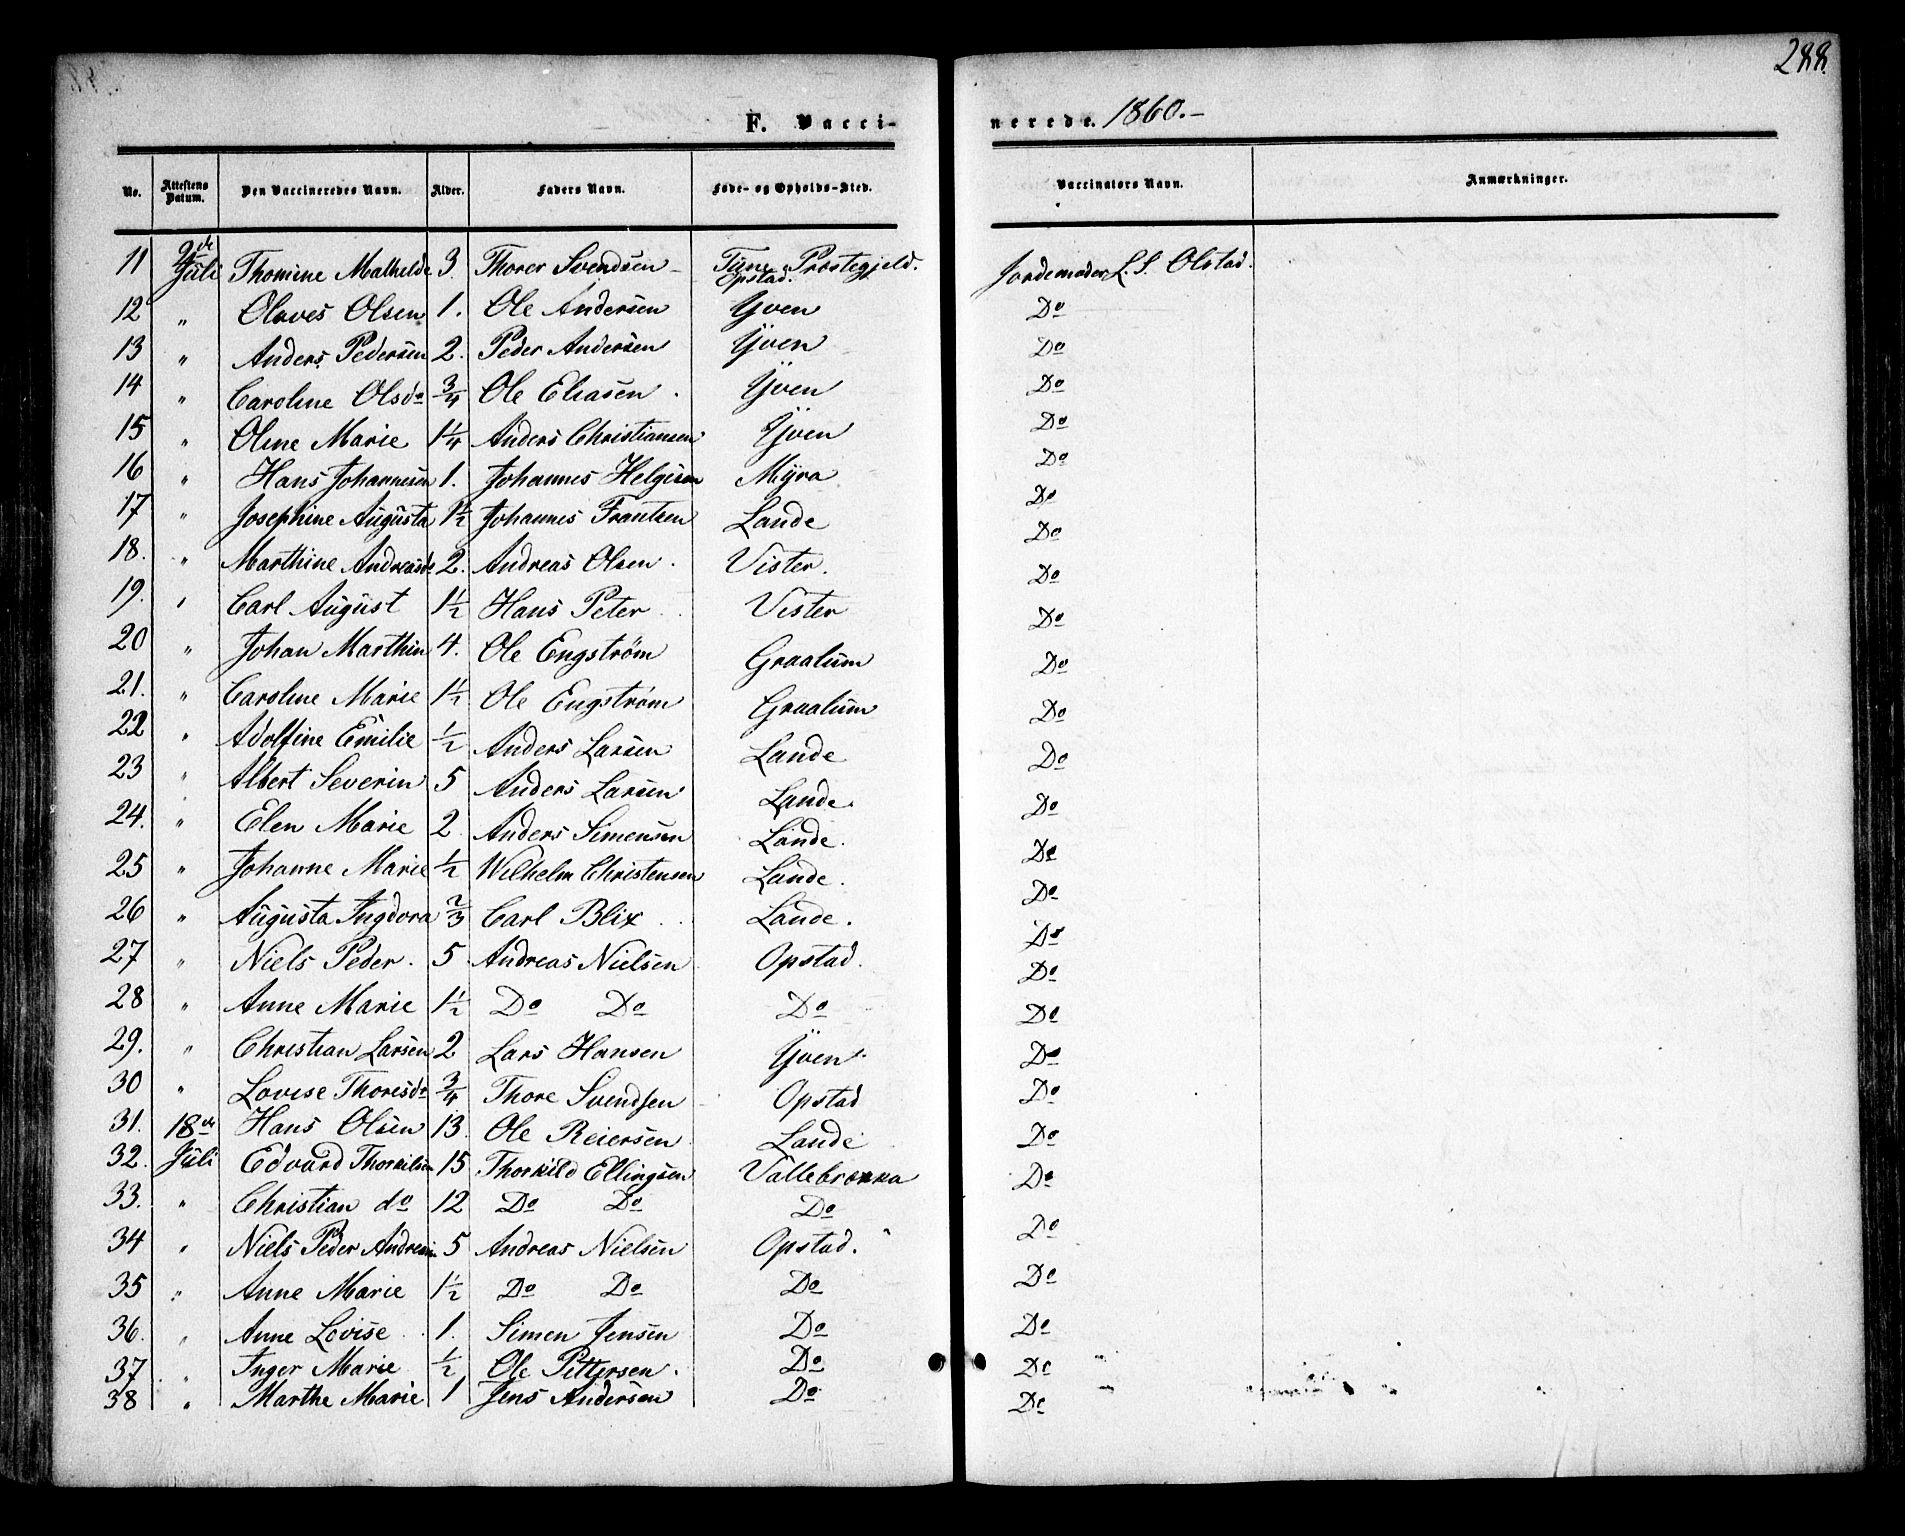 288.
F. Vacci-
nerede. 1860.-
No. Attestens Datum. Den Vaccineredes Navn. Alder. Faders Navn. Føde- og Opholds-Sted. Vaccinators Navn. Anmærkninger.
11 9de Juli Thomine Mathilde 3. Thorer Svendsen Tune Præstegjeld. Opstad. Jordemoder L. S. Olstad.
12 " Olaves Olsen 1. Ole Andersen Yven Do
13 " Anders Pedersen 2. Peder Andersen Yven Do
14 " Caroline Olsdr 3/4 Ole Eliasen. Yven Do
15 " Oline Marie 1 1/4 Anders Christiansen Yven Do
16 " Hans Johannesen 1. Johannes Helgesen Myra Do
17 " Josephine Augusta 1 1/2 Johannes Frantzen Lande Do
18. " Marthine Andreasdr 2. Andreas Olsen. Vister. Do
19. " Carl August 1 1/2 Hans Peter Vister Do
20 " Johan Marthin 4. Ole Engstrøm Graalum Do
21. " Caroline Marie 1 1/2 Ole Engstrøm Graalum Do
22 " Adolfine Emilie 1/2 Anders Larsen Lande Do
23 " Albert Severin 5 Anders Larsen Lande. Do
24. " Elen Marie 2 Anders Simensen Lande. Do
25 " Johanne Marie 1/2 Wilhelm Christensen Lande. Do
26 " Augusta Ingdora 2/3 Carl Blix Lande. Do
27 " Niels Peder. 5 Andreas Nielsen Opstad. Do
28 " Anne Marie 1 1/2 Do Do Do Do
29. " Christian Larsen 2 Lars Hansen Yven. Do
30 " Lovise Thoresdr 3/4 Thore Svendsen Opstad Do
31. 18de Hans Olsen 13. Ole Reiersen Lande Do
32. Juli Edvard Thorkilsen 15 Thorkild Ellingsen Vallebrækka Do
33. " Christian do 12 Do Do Do Do
34 " Niels Peder Andreasen 5 Andreas Nielsen Opstad. Do
35 " Anne Marie 1 1/2 Do Do Do Do
36. " Anne Lovise 1. Simen Jensen Do Do
37 " Inger Marie 1/2 Ole Pettersen. Do Do
38 " Marthe Marie 1 Jens Andersen Do Do